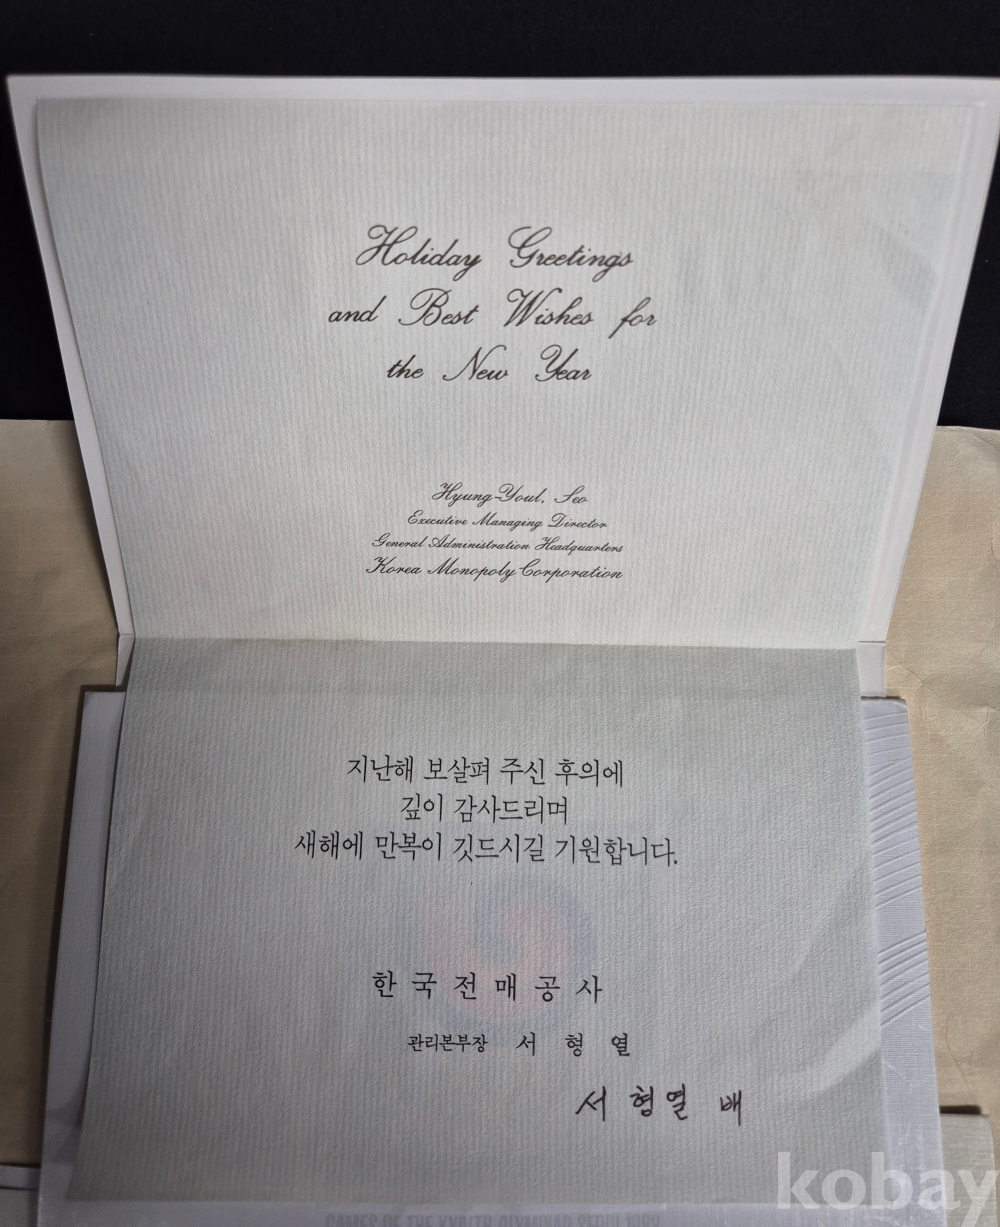 Holiday Greetings
and Best Wishes for
the New Year
Hyung-Youl, Seo
Executive Managing Director
General Administration Headquarters
Korea Monopoly Corporation
지난해 보살펴 주신 후의에
깊이 감사드리며
새해에 만복이 깃드시길 기원합니다.
한국전매공사
관리본부장 서형열
서형열 배
kobay